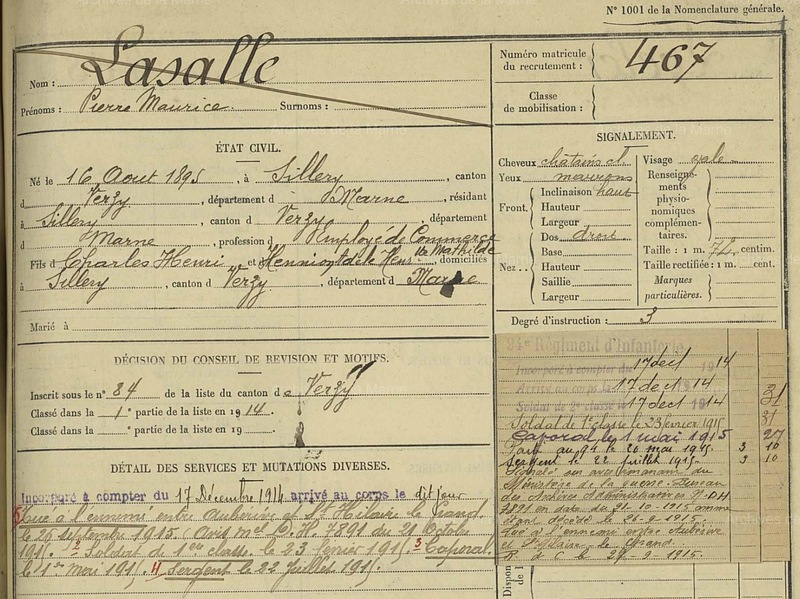 N° 1001 de la Nomenclature générale.
Nom : Lasalle
Prénoms : Pierre Maurice. Surnoms :
Numéro matricule du recrutement : 467
Classe de mobilisation :
ÉTAT CIVIL.
Né le 16 Aout 1895, à Sillery, canton
d Verzy, département d Marne, résidant
à Sillery, canton d Verzy, département
d Marne, profession d Employé de Commerce
Fils d Charles Henri et Mathilde domiciliés
à Sillery, canton d Verzy, département d Marne
Marié à
SIGNALEMENT.
Cheveux châtains cl. Visage ovale
Yeux marrons
Front. Inclinaison haut
Hauteur
Largeur
Nez.. Dos droit
Base
Hauteur
Saillie
Largeur
Renseignements physionomiques complémentaires.
Taille : 1 m. 74 centim.
Taille rectifiée : 1 m. cent.
Marques particulières.
Degré d'instruction : 3
DÉCISION DU CONSEIL DE REVISION ET MOTIFS.
Inscrit sous le n° 84 de la liste du canton de Verzy
Classé dans la 1e partie de la liste en 1914.
Classé dans la e partie de la liste en 19
DÉTAIL DES SERVICES ET MUTATIONS DIVERSES.
Incorporé à compter du 17 Décembre 1914 arrivé au corps le dit jour
5 Tué à l'ennemi entre Auberive et St Hilaire le Grand
le 26 septembre 1915. Avis mel D.H. 7891 du 21 Octobre
1915. 2 Soldat de 1ere classe le 23 février 1915. 3 Caporal
le 1er mai 1915. 4 Sergent le 22 Juillet 1915.
94e Régiment d'Infanterie
Incorporé à compter du 17 dec 1914
Arrivé au corps le 17 dec 1914
Soldat de 2e classe le 17 dec 1914
Soldat de 1e classe le 23 fevrier 1915
Caporal le 1 mai 1915
au 94 le 20 mai 1915.
Sergent le 22 juillet 1915
Signalé son avis émanant du
Ministère de la guerre Bureau
des Archives Administratives N° DH
7891 en date du 21.10.1915 comme
étant décédé le 26.9.1915.
Tué à l'ennemi entre Auberive
et St Hilaire le Grand.
26-9-1915.